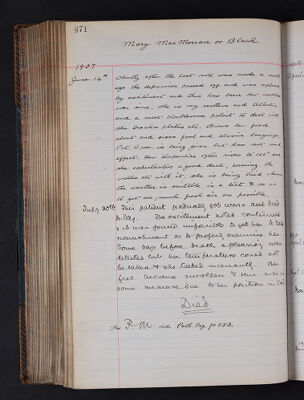 671
Mary MacMorran or Black
1907
June 14th Shortly after the last note was made a month
ago the depression passed off and was replaced
by excitement and this has been her condition
ever since. She is very restless and
and a most troublesome patient to deal with
she breaks plates etc, throws her food
about and uses foul and abusive language.
Pot. Brom. is being given but has not much
effect. Her temperature often rises to 100° and
she expectorates a good deal,
walls etc with it. She is being
the weather is suitable in a tent & so as
to get as much fresh air as possible
July 20th This patient gradually got worse and died
today. The excitement noted continued
& it was found impossible to get her to take
nourishment or to properly examine her.
Some days before death a pleurisy was
detected but her temperature could not
be taken & she talked incessantly. Her
feet became swollen & this was
some measure due to her position in bed.
Died
For P.M. vide Path. Reg. p 553.